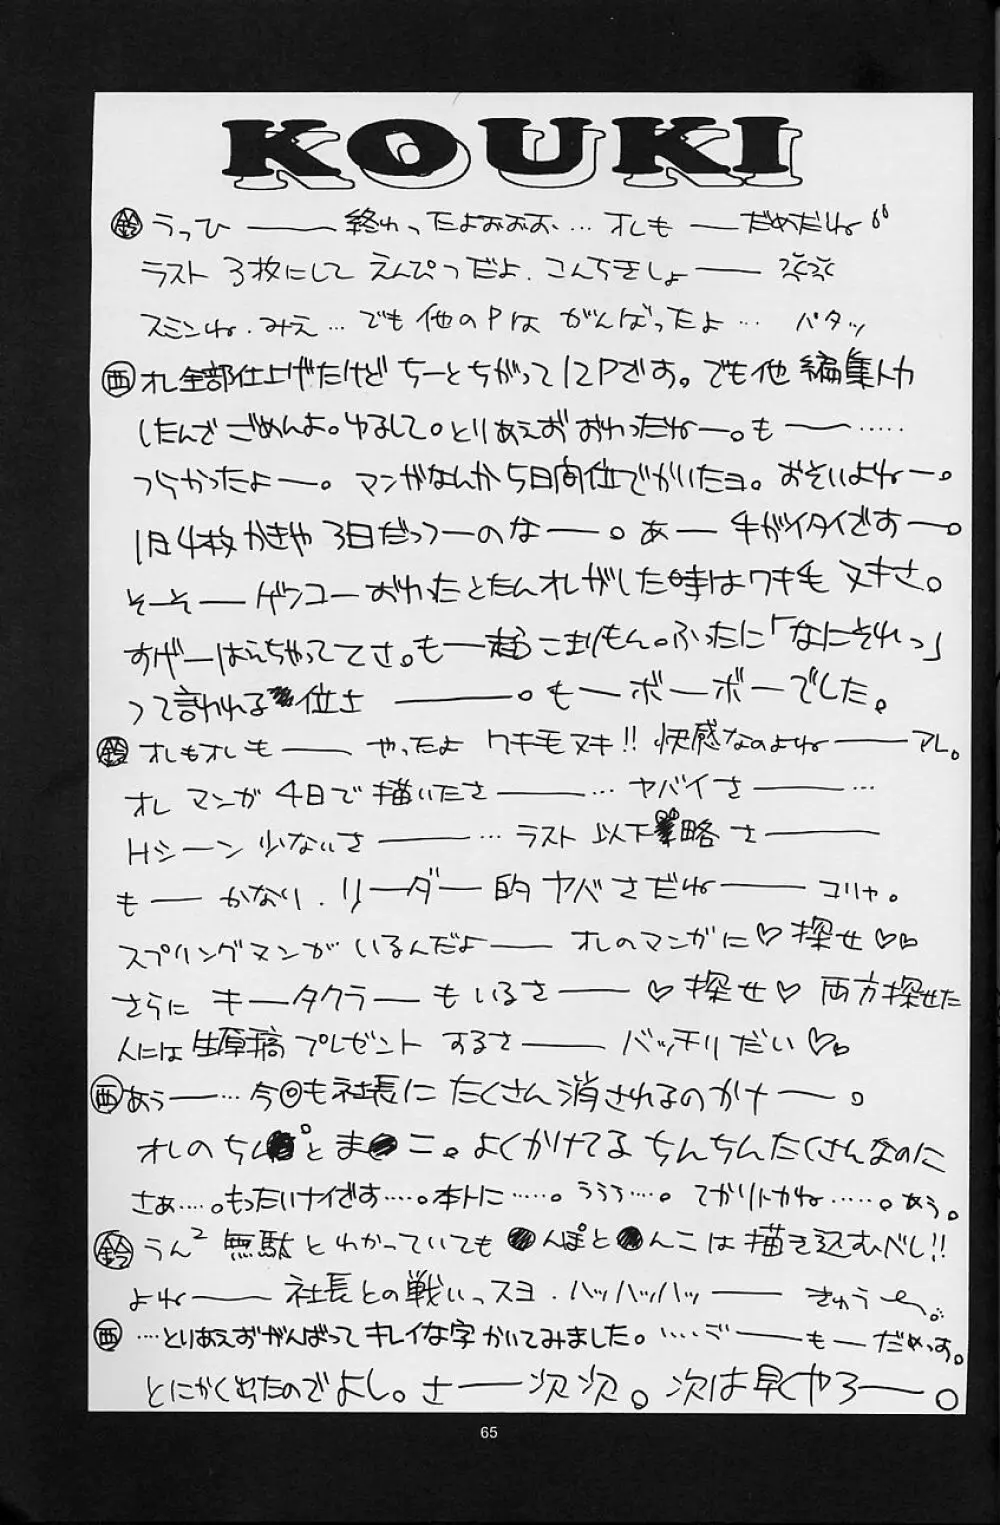 KOUKI
㊎鈴 うっひ――― 終わったよぉぉぉぉ、… オレも ―だめだね
ラスト 3枚にして えんぴつだよ、こんちきしょ―― 泣泣
スミンね、みえ… でも他のPは がんばったよ… パタッ
西 オレ全部仕上げたけど ちーとちがって12Pです。でも他 編集トカ
したんで ごめんよ。ゆるして。とりあえず おわったねー。も――‥‥‥
つらかったよ―。 マンガなんか 5日間位でかいたヨ。おそいよねー。
1日4枚 かきゃ 3日だっつーのな――。あ― 手がイタイです―。
そーそ――ゲンコー おわったとたん オレがした時はワキ毛 ヌキさ。
すげーはえちゃっててさ。も―超 こまりもん。ふったに「なにそれっ」
って言われる 位さ ―――。もーボーボーでした。
鈴 オレもオレも―― やったよ ワキモヌキ!! 快感なのよね――アレ。
オレ マンガ 4日で描いたさ――― … ヤバイさ――― …
Hシーン 少ないさ――― … ラスト 以下 略 さ―――
も―― かなり、リーダー的 ヤバさだね―― コリャ。
スプリングマンが いるんだよ―― オレのマンガに♡探せ♡♡
さらに キータクラーも いるさ―― ♡探せ♡ 両方探せた
人には 生原稿 プレゼント するさ―― バッチリだい♡♡
西 あぅ――… 今◎も社長に たくさん消されるのかナ――。
オレのち●●とま●こ。よくかけてる ちんちんたくさんなのに
さぁ‥‥。もったいナイです‥‥。本トに‥‥‥。ううう‥‥。てかりトカね‥‥‥。あぅ。
鈴 うん² 無駄とわかっていても ●んぽと●んこは描き込むべし!!
よね―― 社長との戦いっスヨ、ハッハッハッ―― きゅう～。
西 …とりあえずがんばって キレイな字 かいてみました。‥‥‥ご――も―だめっす。
とにかく出たのでよし。さ―― 次次。次は早くやろ――。
65